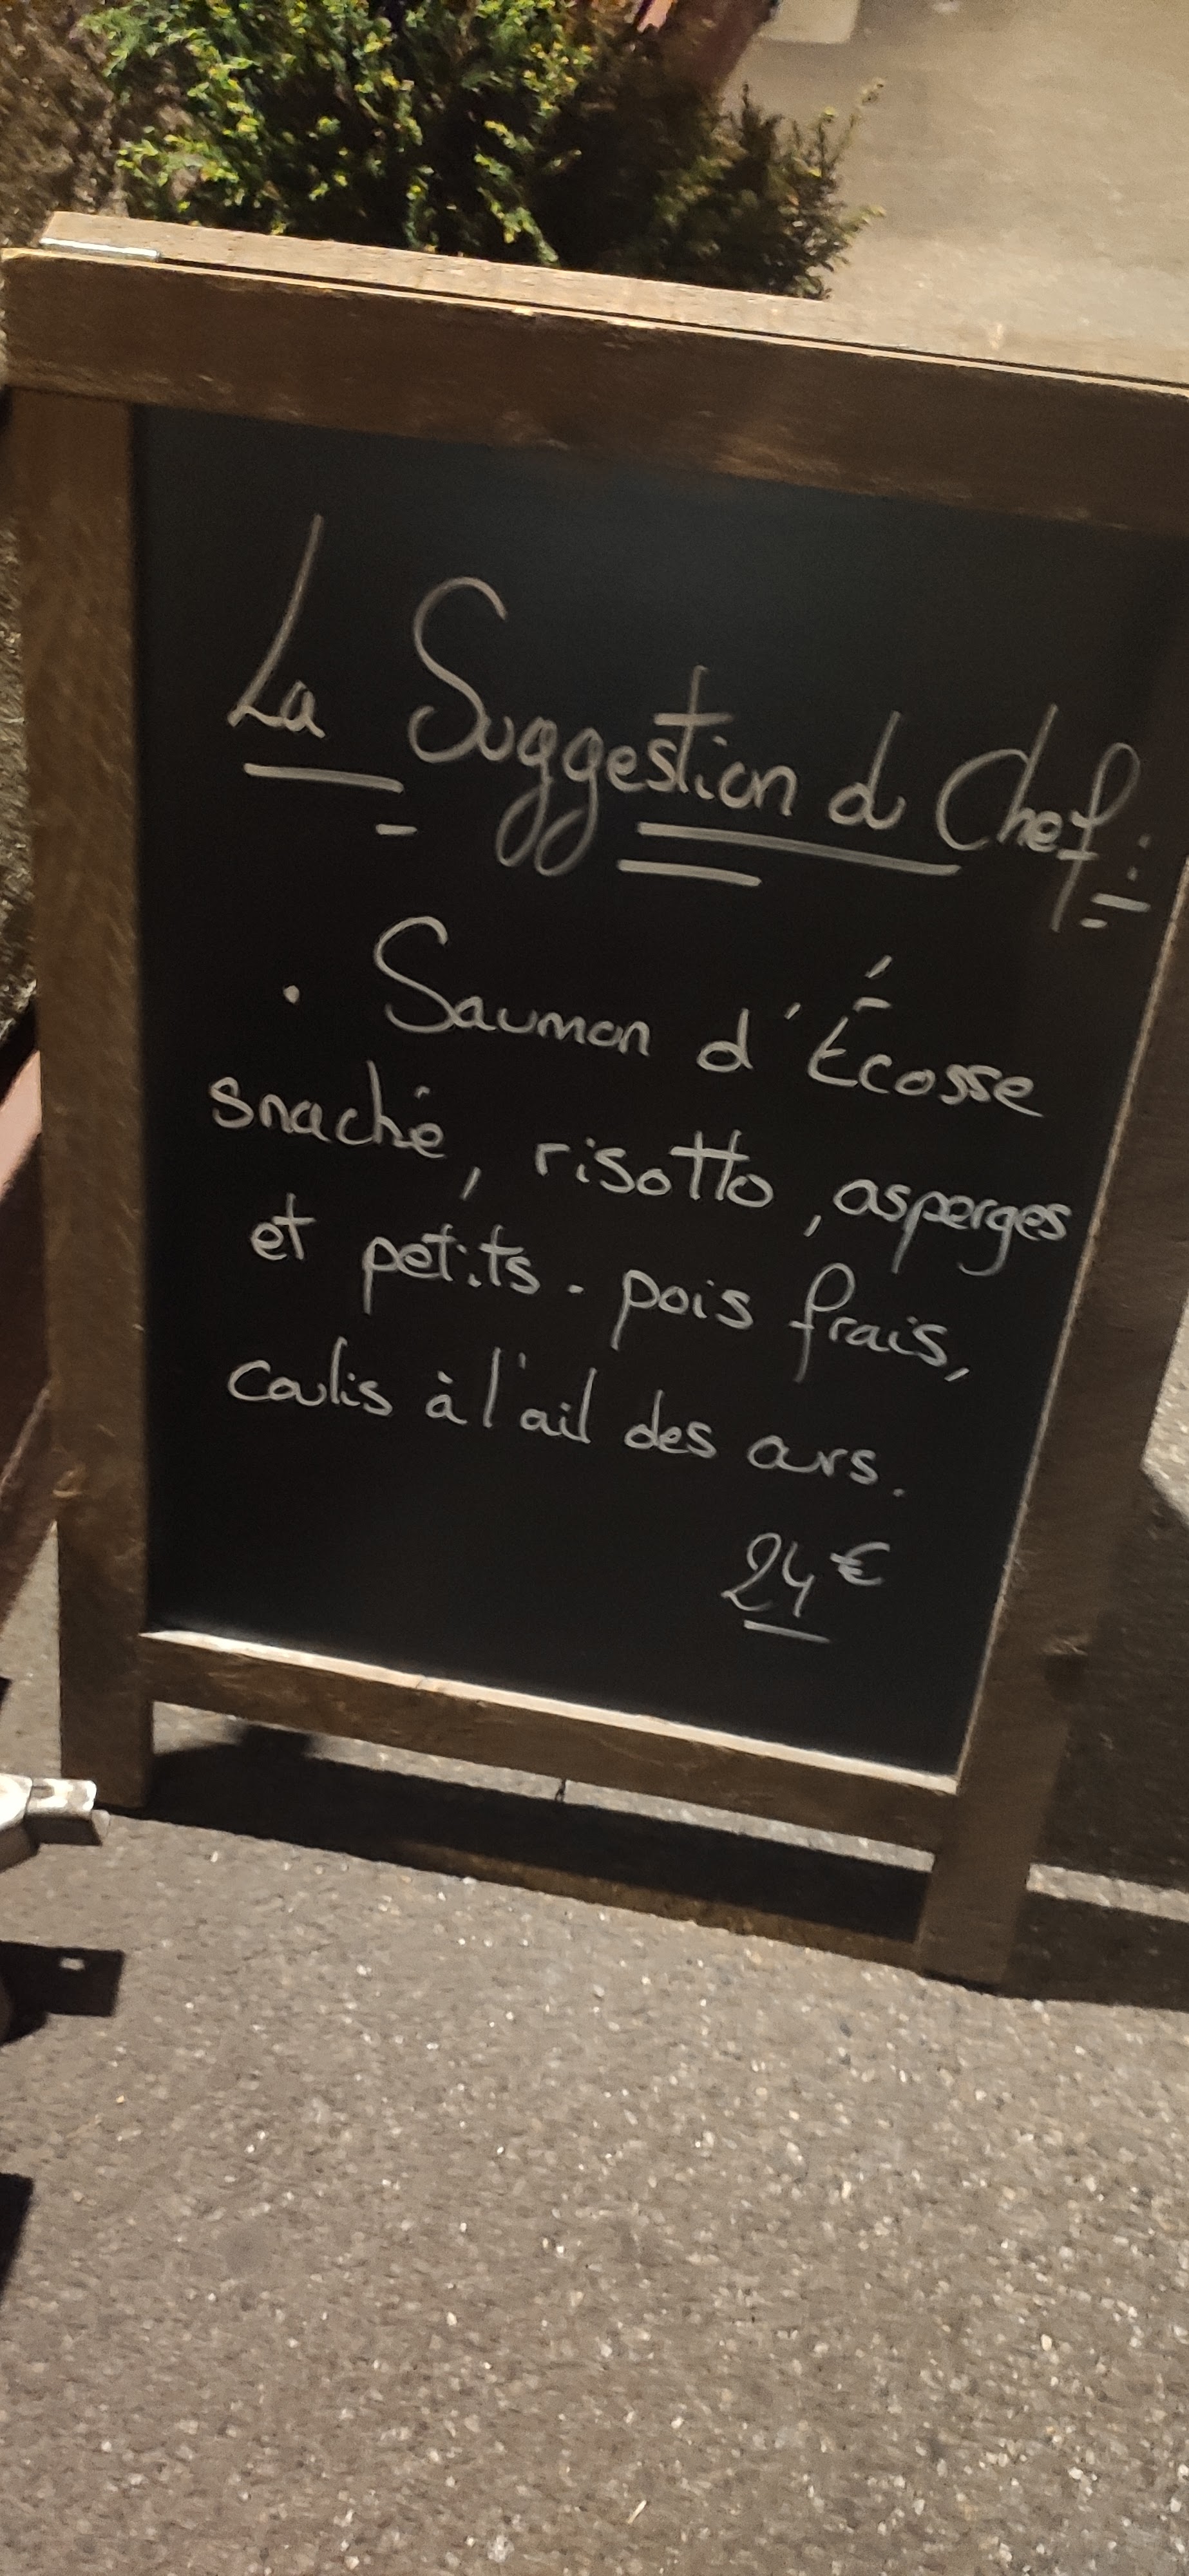 La Suggestion du Chef :
• Saumon d'Écosse
snaché, risotto, asperges
et petits-pois frais,
coulis à l'ail des ours.
24€